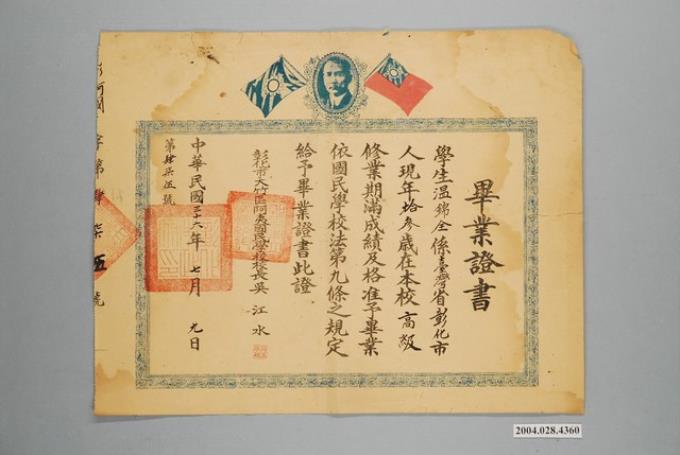 畢業證書
學生溫錦全係臺灣省彰化市
人現年拾參歲在本校高級
修業期滿成績及格准予畢業
依國民學校法第九條之規定
給予畢業證書此證
彰化市大竹區阿夷國民學校校長吳江水
中華民國三十六年七月元日
第肆柒伍號
字第肆柒伍號
2004.028.4360